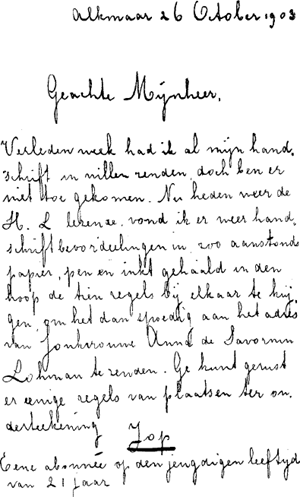 Alkmaar 26 Otober 1903
Geachte Mijnheer,
Verleden week had ik al mijn hand-
schrift in willen zenden, doch ben er
niet toe gekomen. Nu heden weer de
H. L lezende, vond ik er weer hand-
schriftbeoordeelingen in, zoo aanstonds
papier, pen en inkt gehaald in den
hoop de tien regels bij elkaar te krij-
gen, om het dan spoedig aan het adres
van Jonkvrouwe Anna de Savornin
Lohman te zenden. Ge kunt gerust
er eenige regels van plaatsen ter on-
derteekening Jop
Eene abonnée op den jeugdigen leeftijd
van 21 jaar